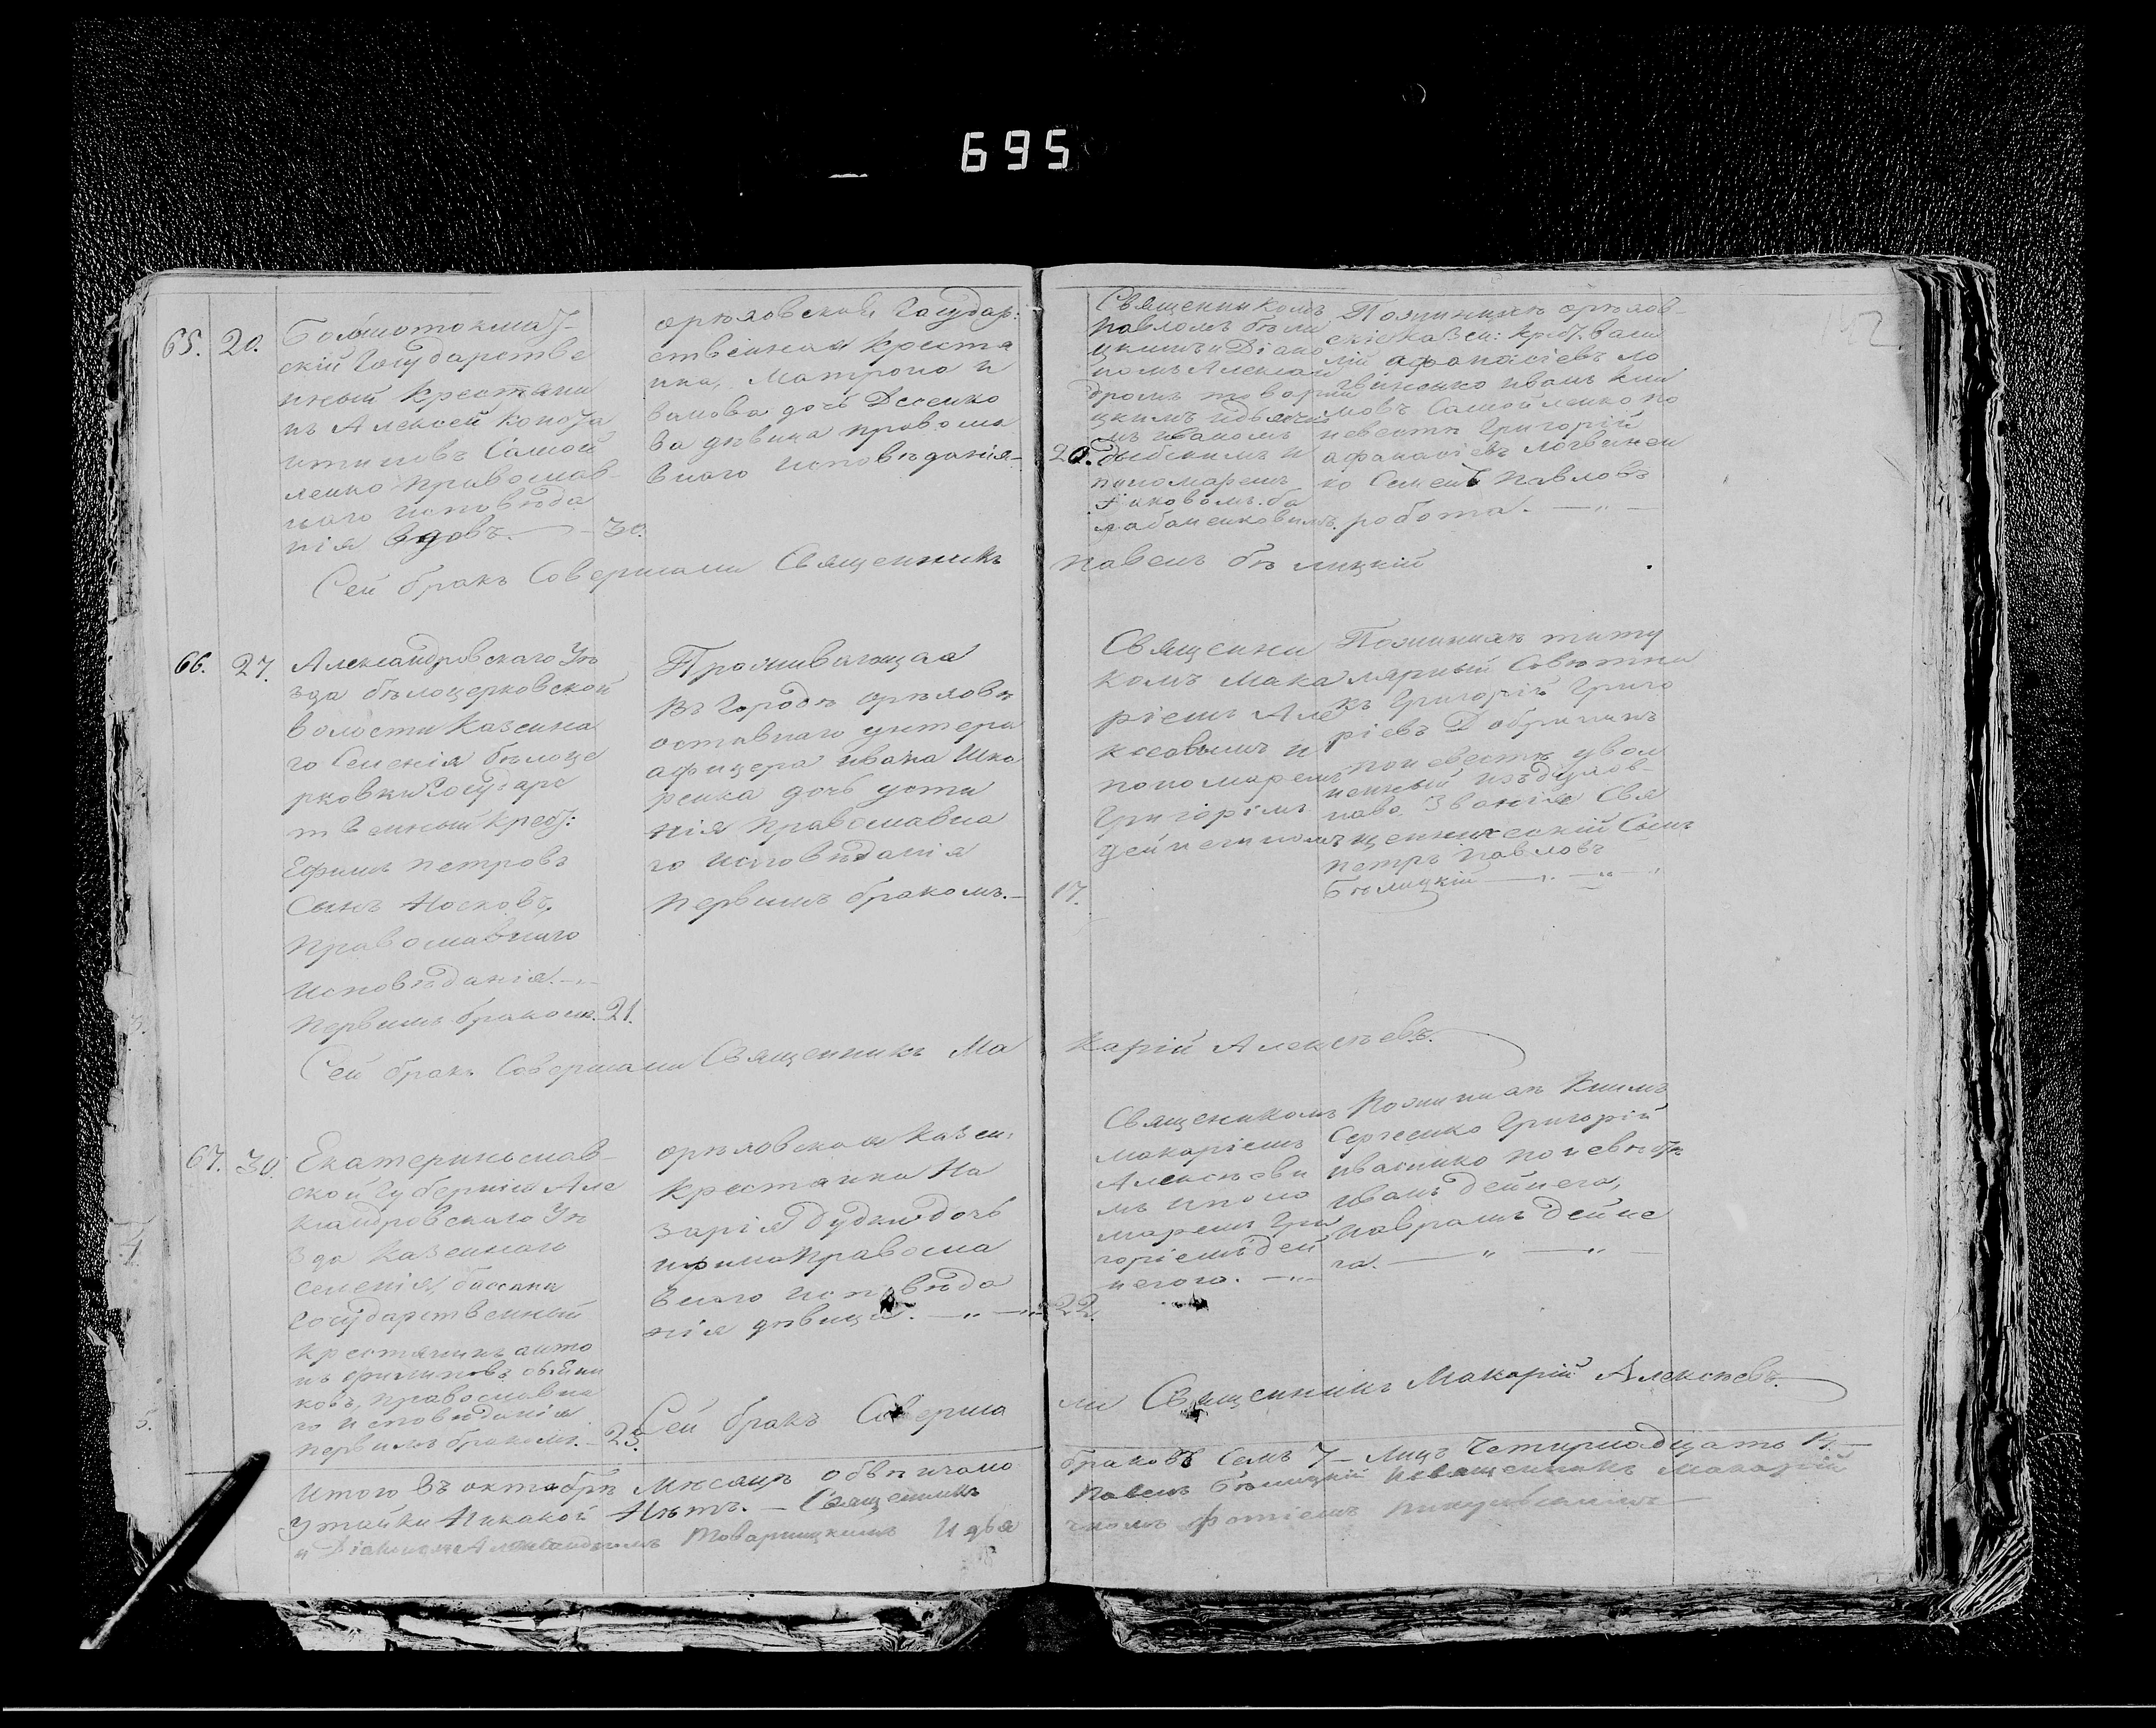 695
65. 20.
Большотокмац-
скій Государстве
нный крестяни
нъ Алексей
Самой
ленко православ
наго исповѣда
нія вдовъ. — 30.
орѣховская Государ:
ственная креста
нка, Матрона И
ванова дочь Десенко
ва дѣвица правосла
внаго исповѣданія
20.
Священникомъ
Павломъ бѣли
цкимъ и Діако
номъ Алексан
дромъ товарни
цкимъ и дьячко
мъ иваномъ
и
пономаремъ
Яковомъ ба
лабаненковимъ.
Пожинихѣ орѣхов-
скіе казен: крест. васи
лій афанасіевъ ло
гвиненко иванъ кли
мовъ Самойленко по
невестѣ Григорій
афанасіевъ логвинен
ко Семенъ Павловъ
робота. — „ —
Сей бракъ Совершали Священникъ
павелъ бѣлицкій
66. 27.
Александровскаго Уѣ
зда бѣлоцерковской
волости Казенна
го Селенія бѣлоце
рковки Государс
твенный крест:
Ефимъ петровъ
Сынъ Носковъ,
православнаго
исповѣданія. —„—
первимъ бракомъ. 21.
Проживающая
въ Городѣ орѣховѣ
отставнаго унтера
афицера ивана Шка
ренка дочь усти
нія православна
го исповѣданія
первимъ бракомъ. —
17.
Священни
комъ Мака
ріемъ Але
ксеевимъ и
пономаремъ
Григоріемъ
дейнегиномъ
Пожинихѣ титу
лярный Совѣтни
къ Григорій Григо
ріевъ Добрининъ
поневестѣ увол
ненный изъ духов-
наво Званія Свя
щеннической Сынъ
петръ Павловъ
Бѣлицкій — „ — „ — „
Сей бракъ Совершали Священникъ Ма
карій Алексѣевъ.
67. 30.
Екатеринославъ-
ской Губерніи Але
ксандровскаго Уѣ
зда казеннаго
селенія, басани
Государственный
крестянинъ анто
нъ филиповъ
ковъ, православна
го исповѣданія
первимъ бракомъ. — 23.
орѣховская казен:
крестянка На
зарія дудки дочь
ирина правосла
внаго исповѣда
нія дѣвица. — „ — „ 22.
Священикомъ
макаріемъ
Алексѣеви
мъ и поно
маремъ Гри
горіемъ дей
негого. — „ —
Пожинихѣ Климъ
Сергеенко Григорій
иваненко поневѣстѣ
иванъ дейнега,
лаврамъ дейне
га. — „ — „ —
Сей бракъ Соверша
ли Священникъ Макарій Алексѣевъ.
Итого въ октябрѣ Месяцѣ обвѣнчано
браковъ Семъ 7 — Лицъ Четирнадцать 14. —
Утайки никакой Нѣтъ. — Священникъ
Павелъ Бѣлицкій Исвященникъ Макарій
и Діакономъ Александромъ Товарницкимъ и дья
чкомъ фотіемъ